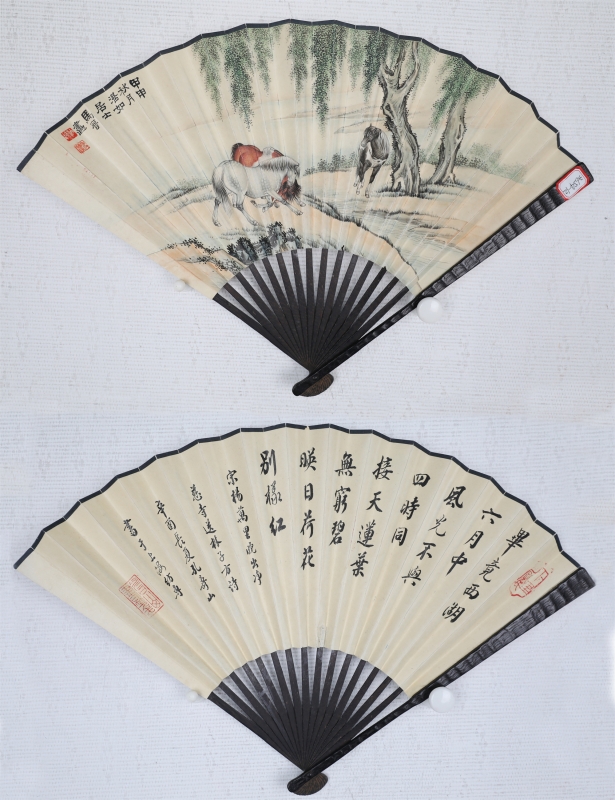 甲申
秋月
湛如
居士
馬晉
畫
畢竟西湖
六月中
風光不與
四時同
接天蓮葉
無窮碧
暎日荷花
別樣紅
宋楊萬里曉出淨
慈寺送林子方詩
辛酉長夏
書于上海